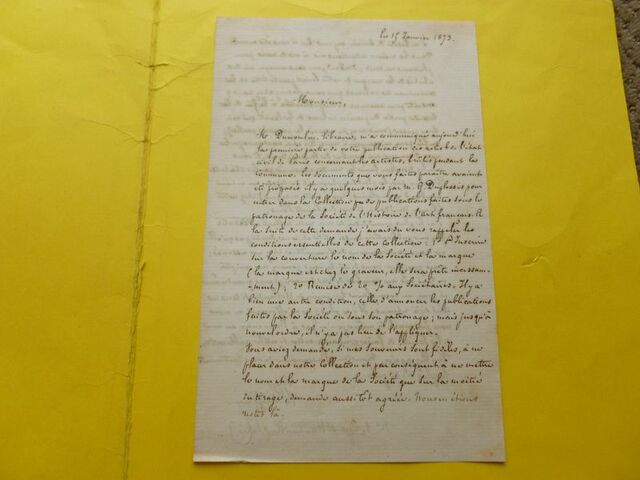 Le 15 Janvier 1873.
Monsieur,
M. Dumoulin, libraire, m'a communiqué aujourd'hui
la première partie de votre publication des actes de l'état
civil de Paris concernant les artistes, brûlés pendant la
commune. Les documents que vous faites paraître avaient
été proposés il y a quelques mois par M. G. Duplessis pour
entrer dans la Collection de publications faites sous le
patronage de la Société de l'Histoire de l'art français. A
la suite de cette demande j'avais du vous rappeler les
conditions essentielles de cette collection : 1º Inscrire
sur la couverture le nom de la Société et la marque
(la marque est chez le graveur, elle sera prête incessam-
-ment) ; 2º Remise de 20 % aux Sociétaires. Il y a
bien une autre condition, celle d'annoncer les publications
faites par la Société ou sous son patronage ; mais jusqu'à
nouvel ordre, il n'y a pas lieu de l'appliquer.
Vous aviez demandé, si mes souvenirs sont fidèles, à ne
placer dans notre Collection et par conséquent à ne mettre
le nom et la marque de la Société que sur la moitié
du tirage, demande aussitôt agréée. Nous en étions
restés là.